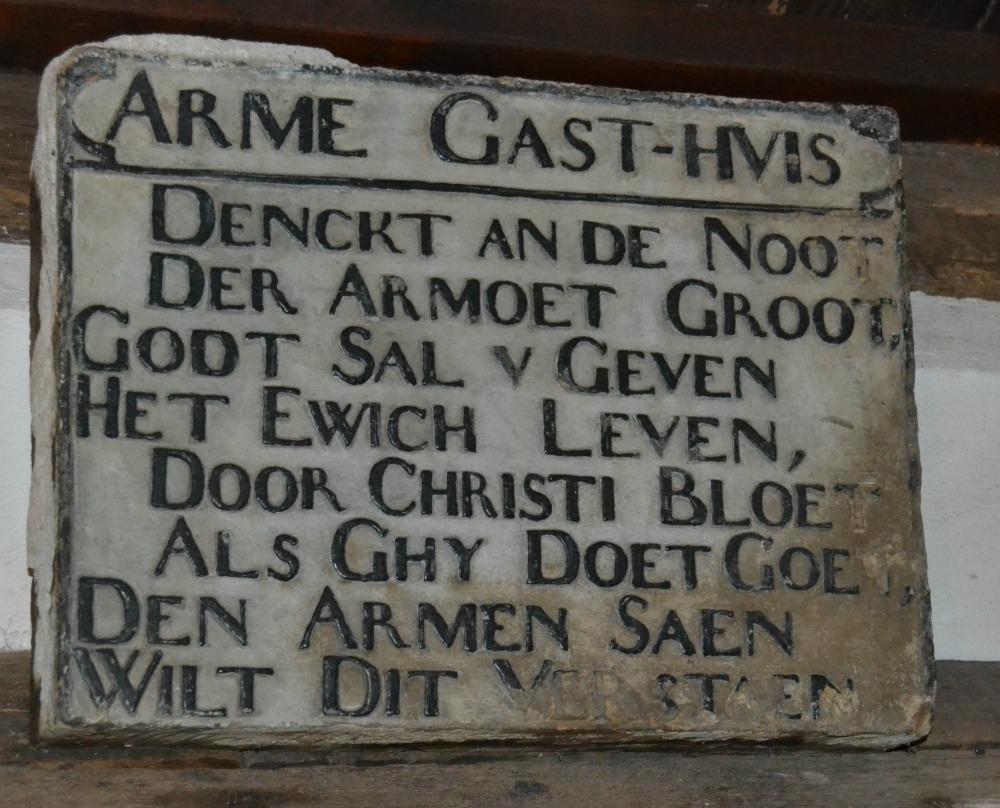 ARME GAST-HVIS
DENCKT AN DE NOOT
DER ARMOET GROOT,
GODT SAL V GEVEN
HET EWICH LEVEN,
DOOR CHRISTI BLOET
ALS GHY DOET GOET,
DEN ARMEN SAEN
WILT DIT VERSTAEN